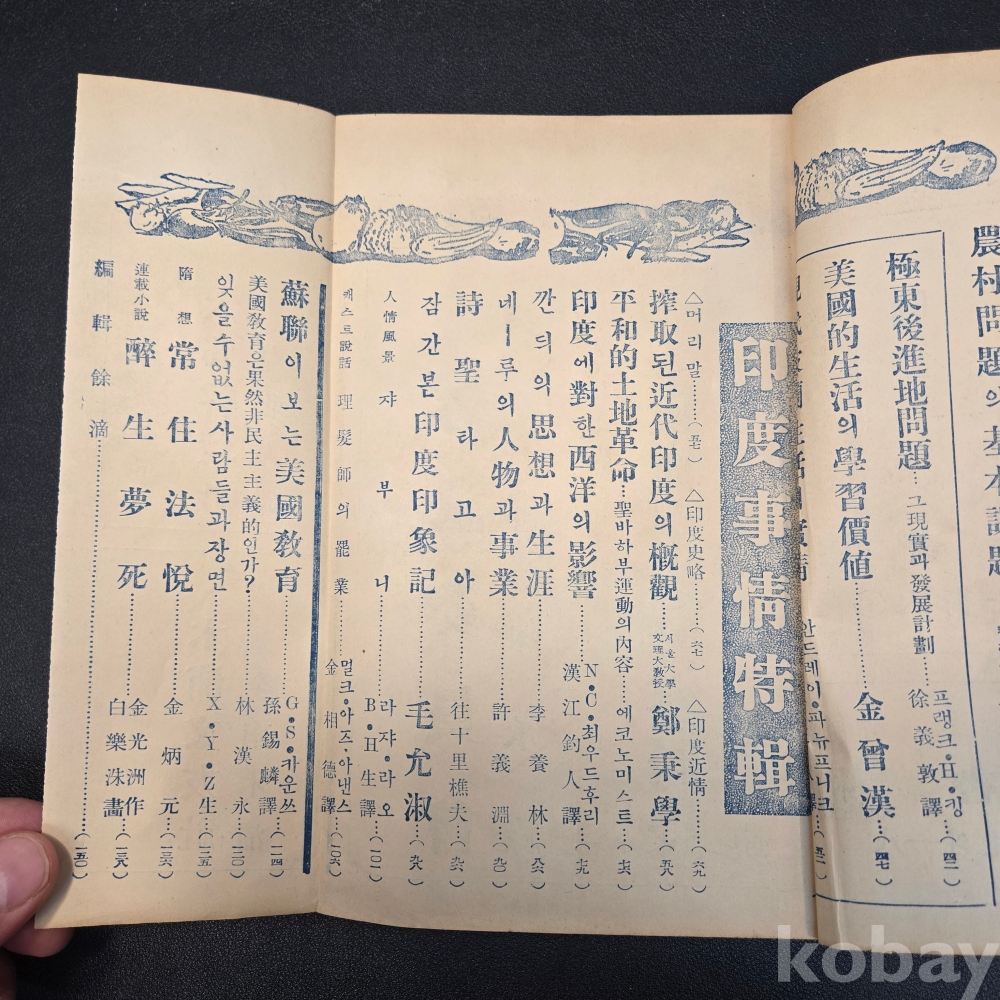 農村問題의基本課題
極東後進地問題…그現實과發展計劃……프랭크•H•킹 徐義敦譯…(四二)
美國的生活의學習價値……金曾漢…(四七)
안드레이•파뉴프니크…(五二)
印度事情特輯
△머리말……(五七) △印度史略……(六七) △印度近情……(六九)
搾取된近代印度의槪觀…서울大學文理大敎授 鄭秉學…(五八)
平和的土地革命…聖바하부運動의內容……에코노미스트…(七六)
印度에對한西洋의影響……N•C•최우드후리 漢江釣人譯…(七九)
깐듸의思想과生涯……李養林…(八六)
네ー루의人物과事業……許義淵…(九〇)
詩聖타고아……往十里樵夫…(九六)
잠간본印度印象記……毛允淑…(九八)
人情風景 쟈부니……라쟈•라오 B•H生譯…(一〇二)
캐스트說話 理髮師의罷業……멀크•아즈•아낸스 金相德譯…(一〇六)
蘇聯이보는美國敎育……G•S•카운쓰 孫錫麟譯…(一一四)
美國敎育은果然非民主主義的인가?……林漢永…(一二〇)
잊을수없는사람들과장면……X•Y•Z生…(一二五)
隋想 常住法悅……金炳元…(一三六)
連載小說 醉生夢死……金光洲作 白樂洙畫…(一三八)
編輯餘滴……(一五〇)
kobay